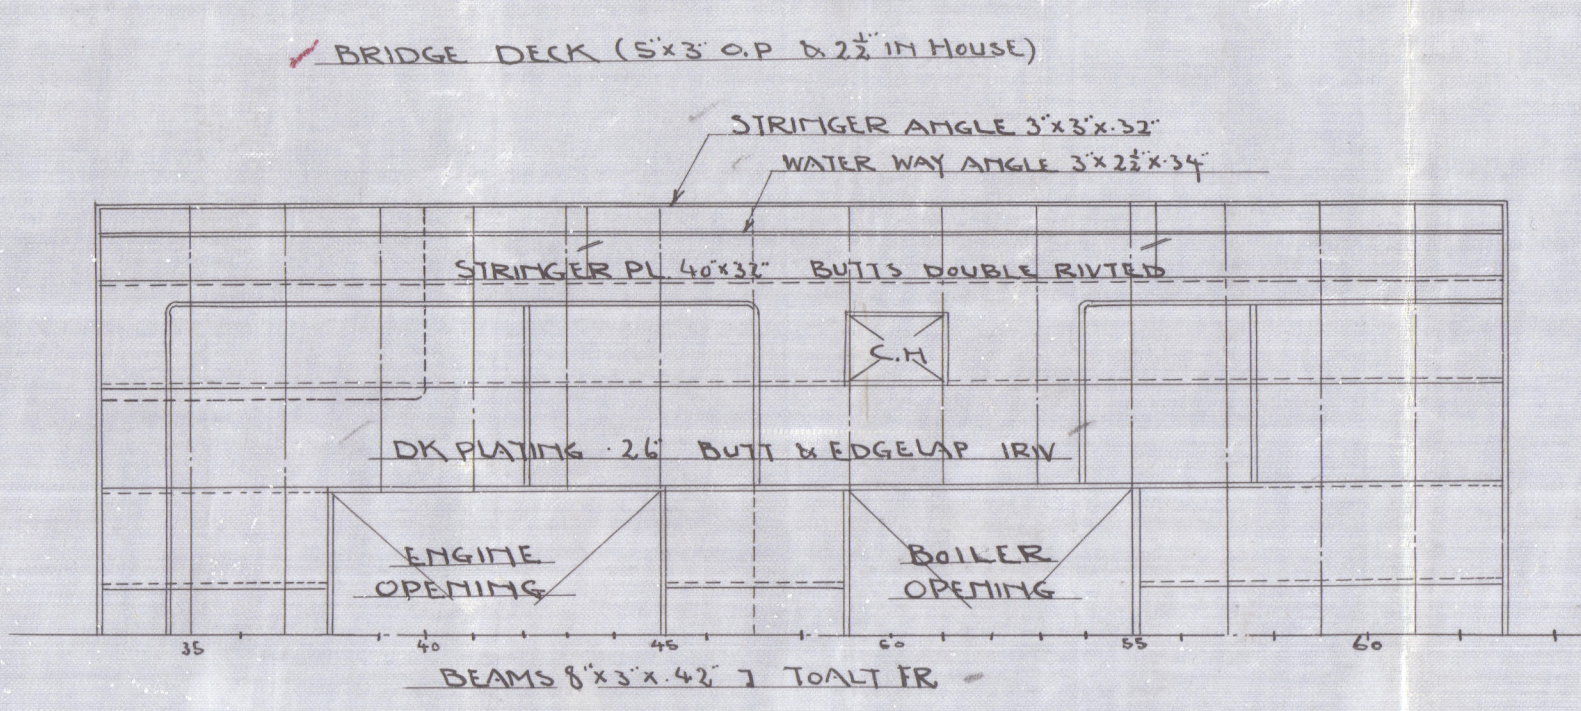 BRIDGE DECK (5"X3" O.P & 2½" IN HOUSE)
STRINGER ANGLE 3"X3"X.32"
WATER WAY ANGLE 3"X2½"X.34"
STRINGER PL. 40"X32" BUTTS DOUBLE RIVTED
C.H
DK PLATING .26" BUTT & EDGELAP IRIV
ENGINE
OPENING
BOILER
OPENING
35 40 45 60 55 60
BEAMS 8"X3"X.42" ] TO ALT FR